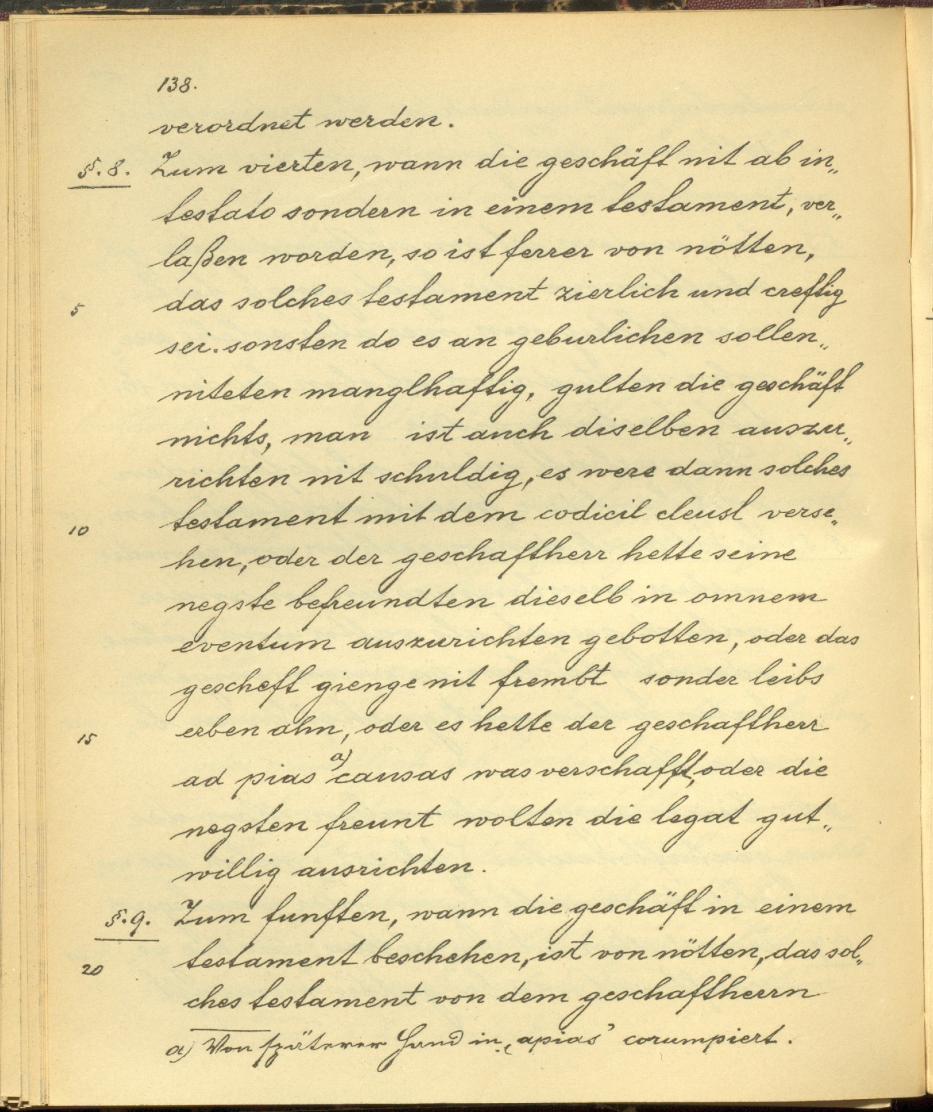 138.
verordnet werden.
§. 8. Zum vierten, wann die geschäft nit ab in„
testato sondern in einem testament, ver„
laßen worden, so ist ferrer von nötten,
5 das solches testament zierlich und creftig
sei. sonsten do es an geburlichen sollen„
niteten manglhaftig, gulten die geschäft
nichts, man ist auch diselben auszu„
richten nit schuldig, es were dann solches
10 testament mit dem codicil cleusl verse„
hen, oder der geschaftherr hette seine
negste befreundten dieselb in omnem
eventum auszurichten gebotten, oder das
gescheft gienge nit frembt sonder leibs
15 erben ahn, oder es hette der geschaftherr
ad pias a) causas was verschafft, oder die
negsten freunt wolten die legat gut„
willig ausrichten.
§. 9. Zum funften, wann die geschäft in einem
20 testament beschehen, ist von nötten, das sol„
ches testament von dem geschaftherrn
a) Von späterer Hand in „apias" corumpiert.